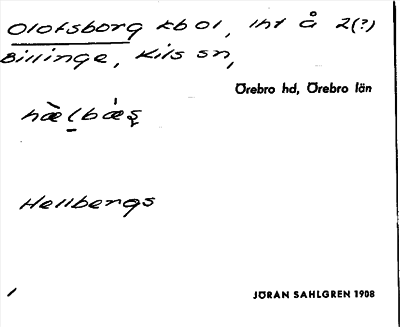 Olofsborg kbol, lht å 2(?)
Billinge, Kils sn,
Örebro hd, Örebro län
hæ̀lbæ̇ʂ
Hellbergs
JÖRAN SAHLGREN 1908